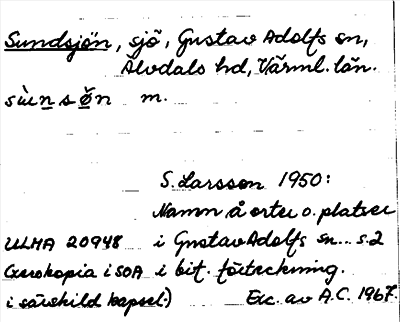 Sundsjön, sjö, Gustav Adolfs sn,
Älvdals hd, Värml. län.
sùnsǿn m.
S. Larsson 1950:
Namn å orter o. platser
ULMA 20948 i Gustav Adolfs sn... s. 2
(Xerokopia i SOA i bif. förteckning.
i särskild kapsel.) Exc. av A.C. 1967.